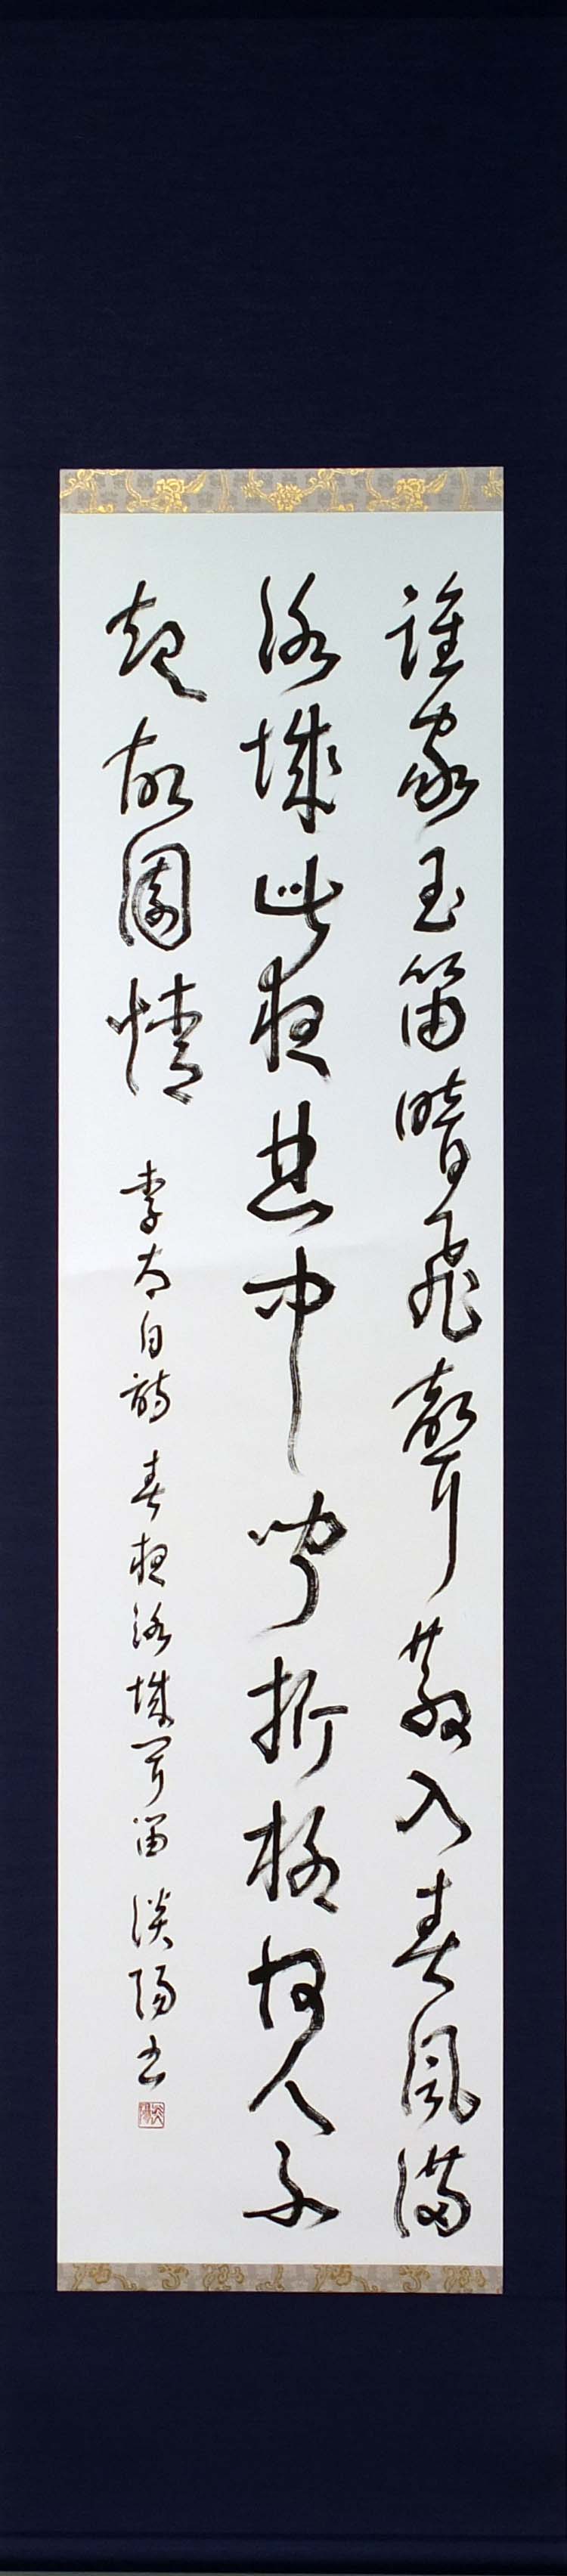 誰家玉笛暗飛聲散入春風滿
洛城此夜曲中聞折柳何人不
起故園情 李太白詩 春夜洛城聞笛 淡陽書